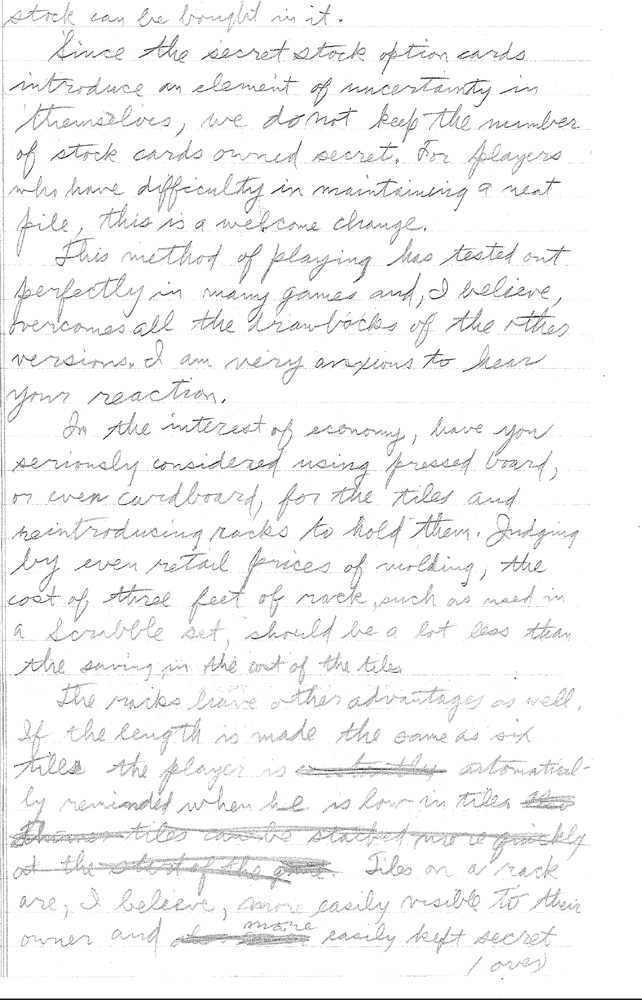 stock can be bought in it.
Since the secret stock option cards
introduce an element of uncertainty in
themselves, we do not keep the number
of stock cards owned secret. For players
who have difficulty in maintaining a neat
pile, this is a welcome change.
This method of playing has tested out
perfectly in many games and, I believe,
overcomes all the drawbacks of the other
versions. I am very anxious to hear
your reaction.
In the interest of economy, have you
seriously considered using pressed board,
or even cardboard, for the tiles and
reintroducing racks to hold them. Judging
by even retail prices of molding, the
cost of three feet of rack, such as used in
a Scrabble set, should be a lot less than
the saving in the cost of the tiles
The racks have other advantages as well.
If the length is made the same as six
tiles the player is automatical-
ly reminded when he is low in tiles
tiles can be stacked more quickly
at the start of the game. Tiles on a rack
are, I believe, more easily visible to their
owner and more easily kept secret
(over)